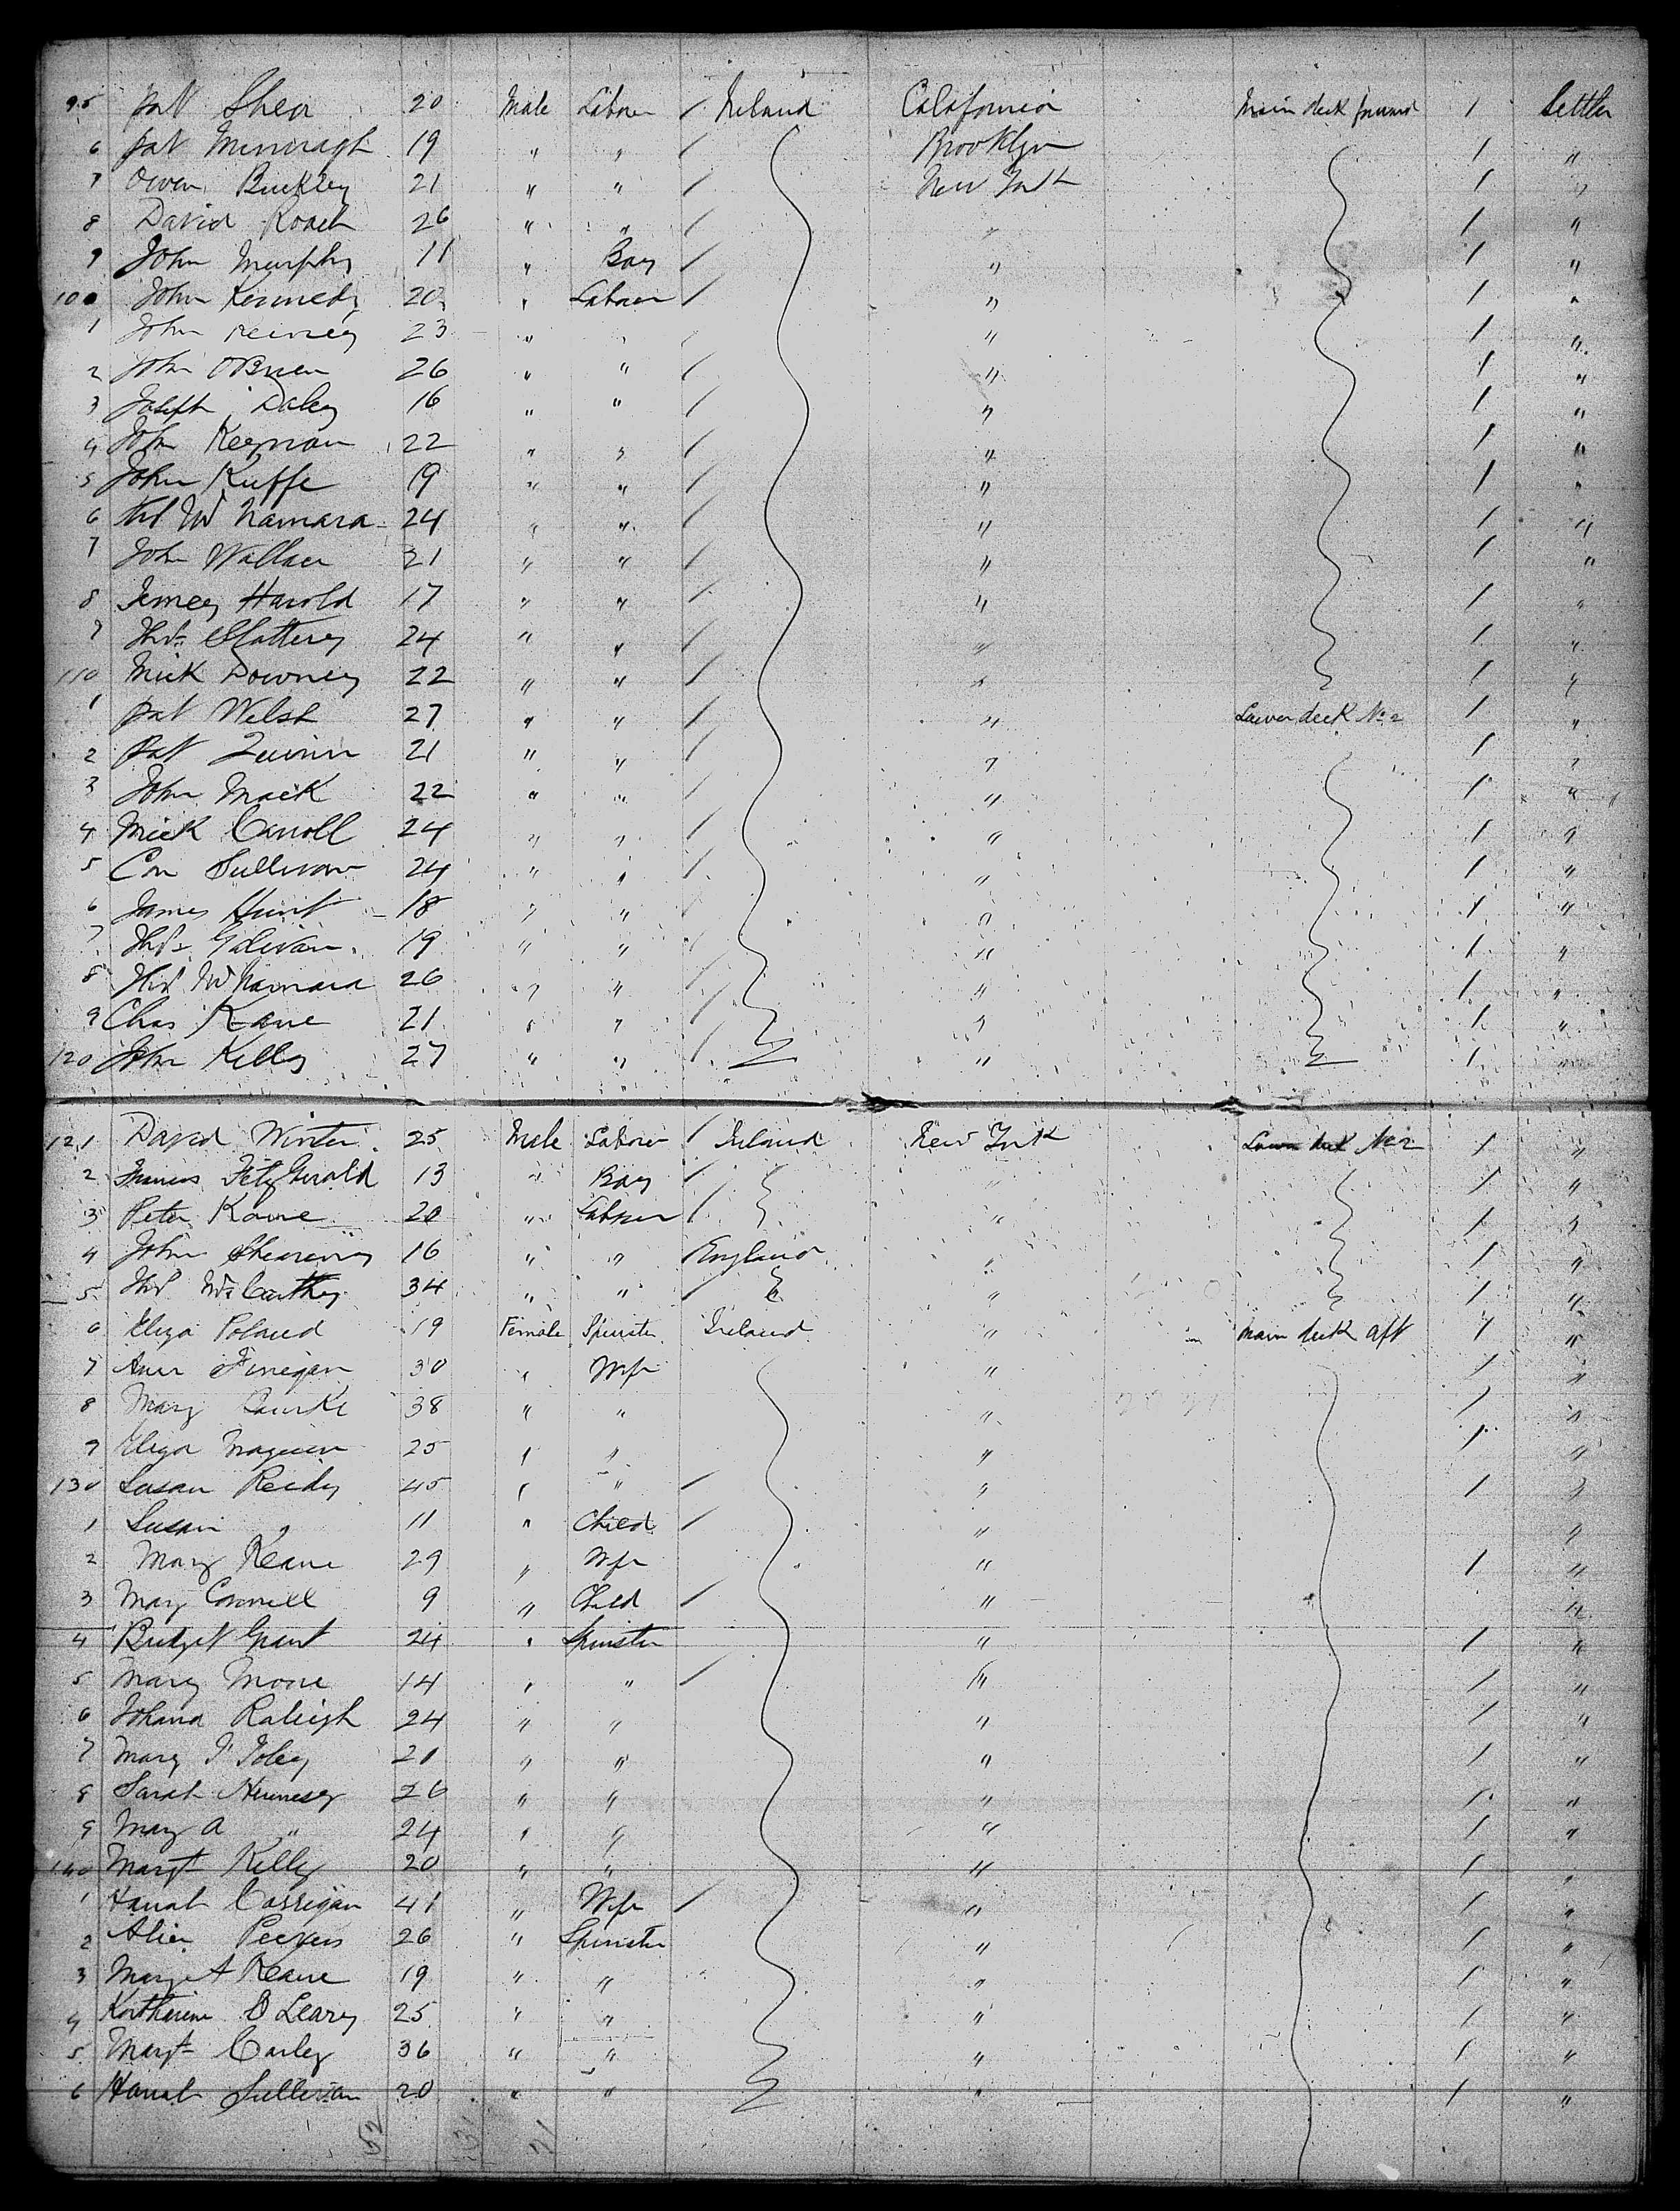 95 Pat Shea 20 Male Labour / Ireland California Main deck forward / Settler
6 Pat 19 " " / Brooklyn / "
7 Owen Buckley 21 " " / New York / "
8 David Roach 26 " " / " / "
9 John Murphy 11 " Boy / " / "
100 John Kennedy 20 " Labour / " / "
1 John 23 " " / " / "
2 John OBrien 26 " " / " / "
3 Joseph Daley 16 " " / " / "
4 John Keernan 22 " " / " / "
5 John 19 " " / " / "
6 Thos McNamara 24 " " / " / "
7 John Wallace 21 " " / " / "
8 Harold 17 " " / " / "
9 Thos Slattery 24 " " / " / "
110 Mick Downey 22 " " / " / "
1 Pat Welsh 27 " " / " Lower deck No 2 / "
2 Pat Quinn 21 " " / " / "
3 John Mack 22 " " / " / "
4 Mick Carroll 24 " " / " / "
5 Con Sullivan 24 " " / " / "
6 James Hunt 18 " " / " / "
7 Thos Galivan 19 " " / " / "
8 Thos McNamara 26 " " / " / "
9 Chas Kane 21 " " / " / "
120 John Kelly 27 " " / " / "
121 David Winter 25 Male Labour / Ireland New York Lower deck No 2 / "
2 FitzGerald 13 " Boy / " / "
3 Peter Kane 20 " Labour / " / "
4 John 16 " " England " / "
5 Thos McCarthy 34 " " / " / "
6 Eliza Poland 19 Female Spinster Ireland " Main deck aft / "
7 Ann Finegan 30 " Wife " / "
8 Mary 38 " " " / "
9 Eliza 25 " " " / "
130 Susan Reidy 45 " " / " / "
1 Susan " 11 " Child / " "
2 Mary Keane 29 " Wife " / "
3 Mary Connell 9 " Child / " "
4 Bridget Grant 24 " Spinster " / "
5 Mary Moore 14 " " / " / "
6 Johana Raleigh 24 " " " / "
7 Mary Foley 21 " " " / "
8 Sarah Hennesey 26 " " " / "
9 Mary A " 24 " " " / "
140 Margt Kelly 20 " " " / "
1 Hanah Corrigan 41 " Wife / " / "
2 26 " Spinster " / "
3 Keane 19 " " " / "
4 Katherine O Leary 25 " " " / "
5 Margt 36 " " " / "
6 Hanah Sullivan 20 " " " / "